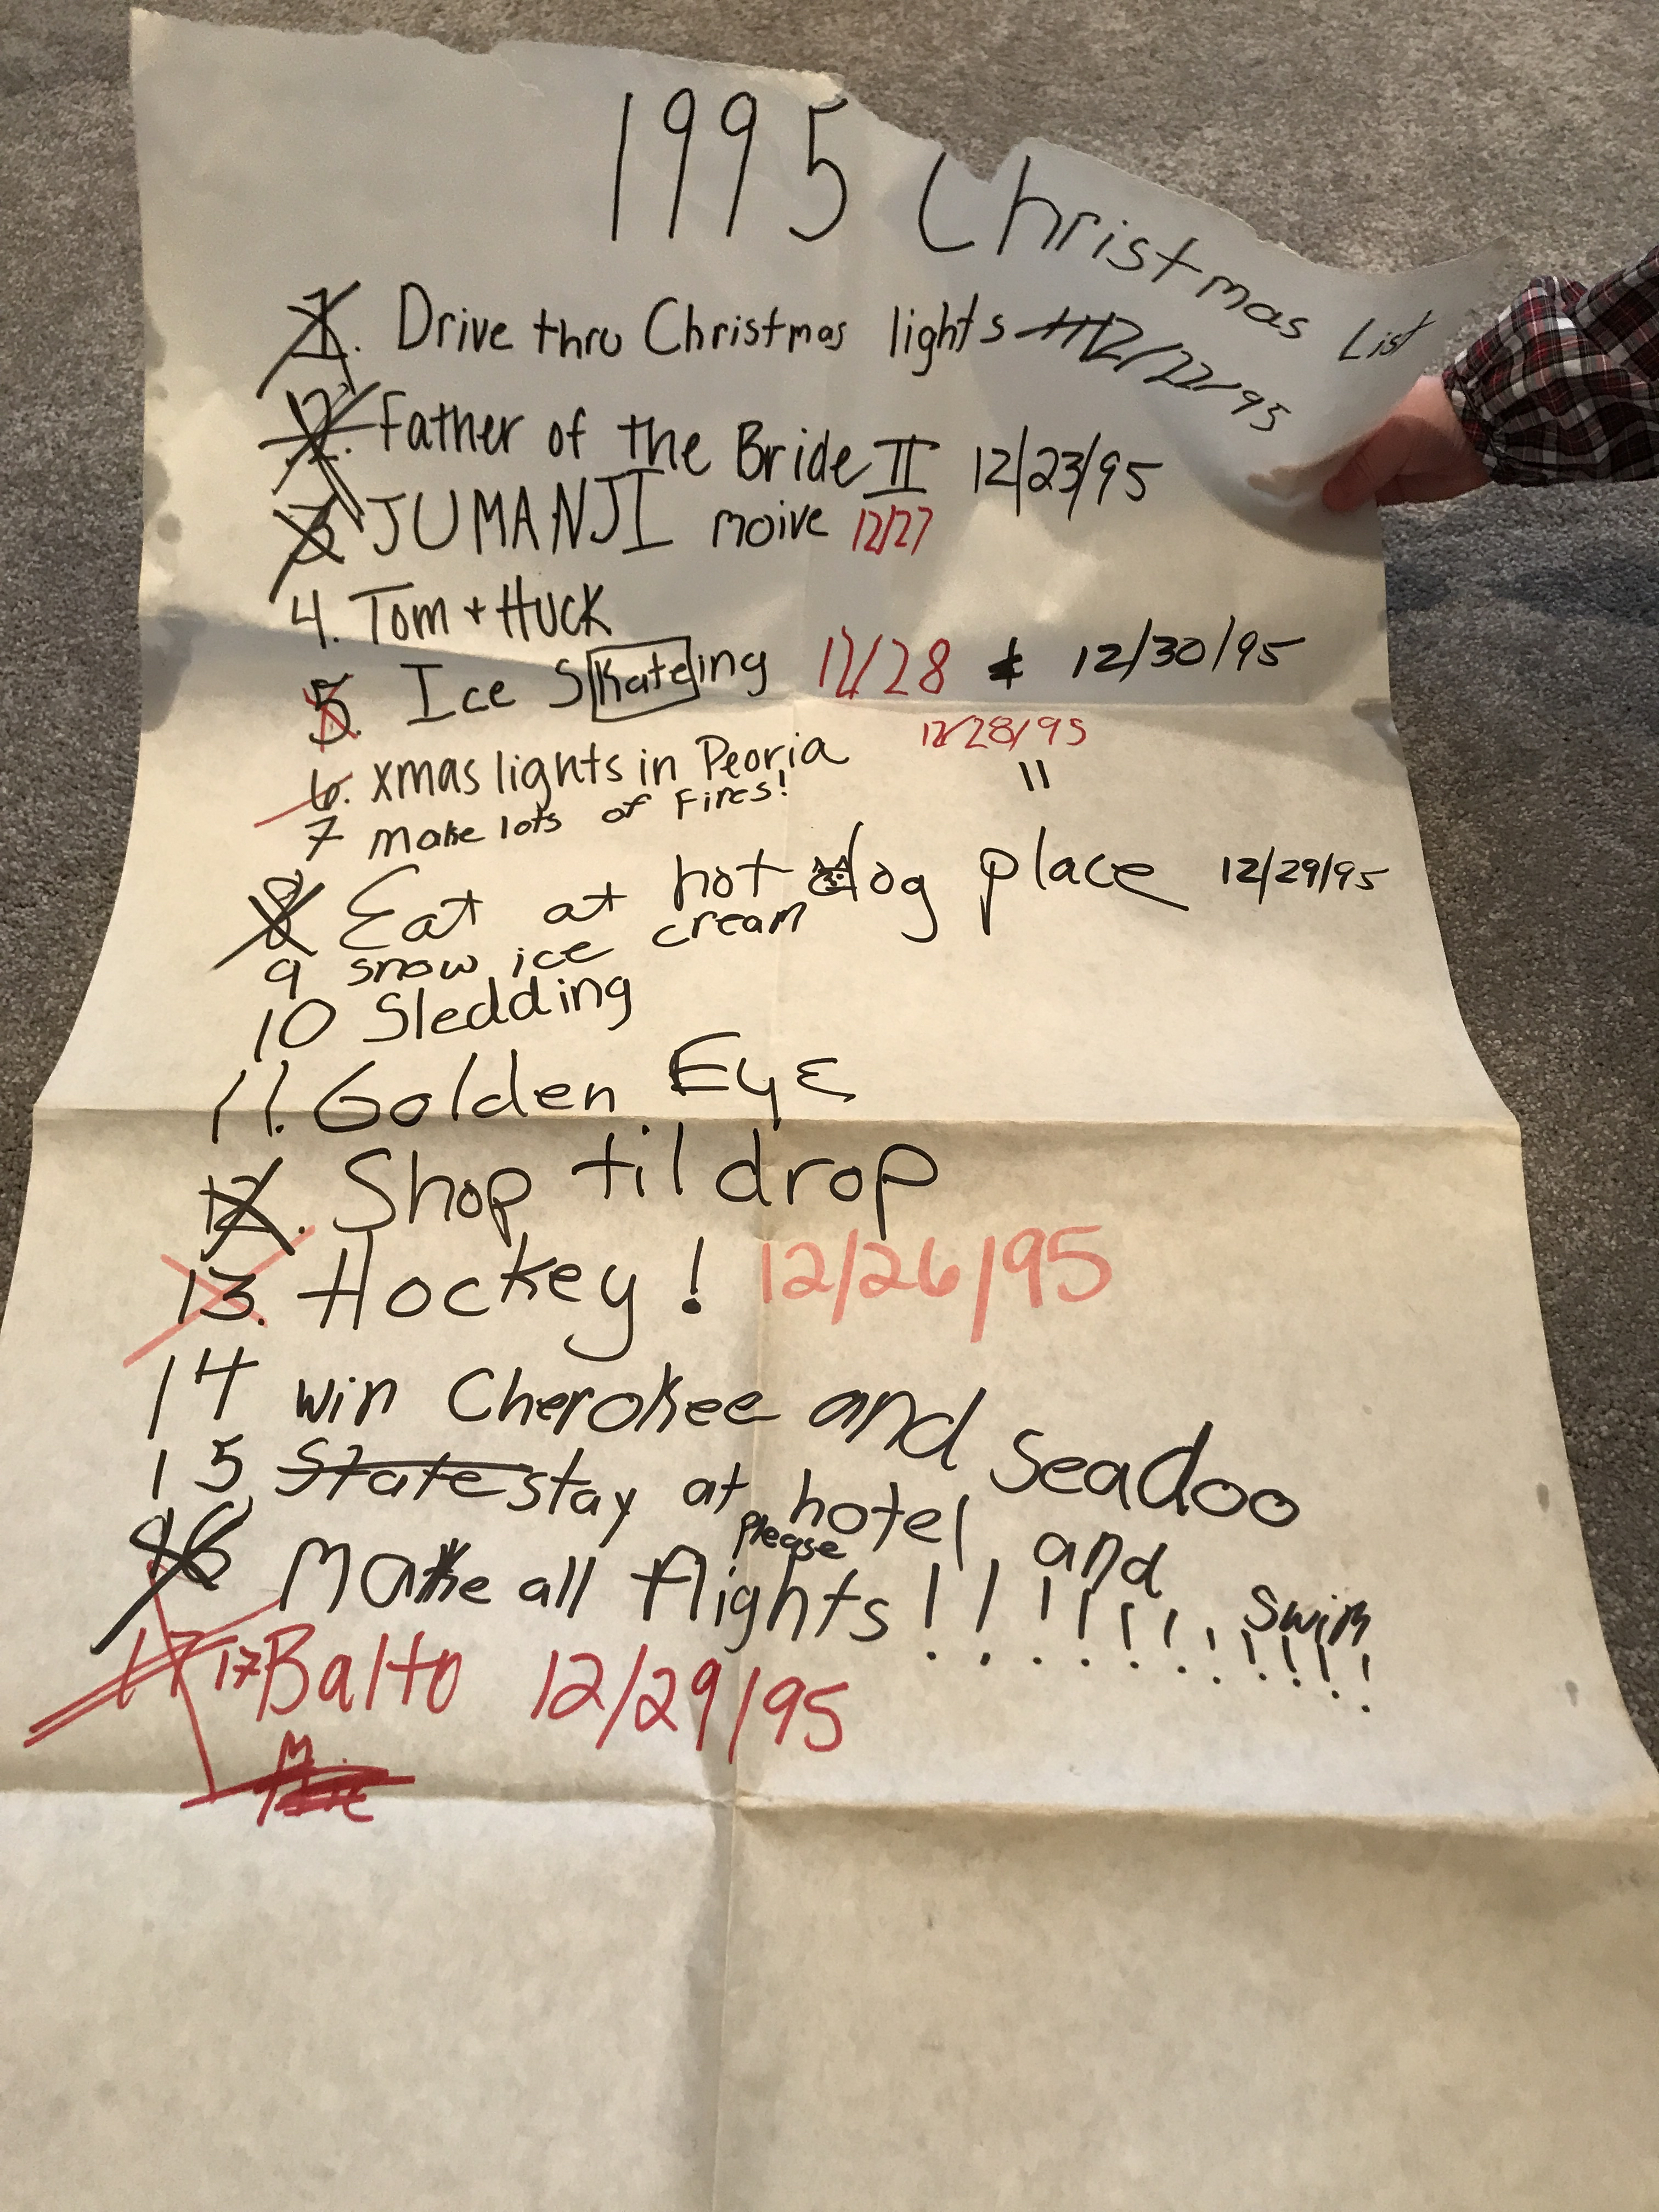 1995 Christmas List
1. Drive thru Christmas lights 12/22/95
2. Father of the Bride II 12/23/95
3 JUMANJI moive 12/27
4. Tom + Huck
5. Ice Skateing 12/28 & 12/30/95
6. xmas lights in Peoria 12/28/95
7 make lots of Fires! "
8 Eat at hot dog place 12/29/95
9 snow ice cream
10 Sledding
11. Golden Eye
12. Shop til drop
13. Hockey! 12/26/95
14 win Cherokee and Seadoo
15 State stay at hotel and swim
16 Make all flights please !!!!!!!!!!!!
17 17 Balto 12/29/95
M